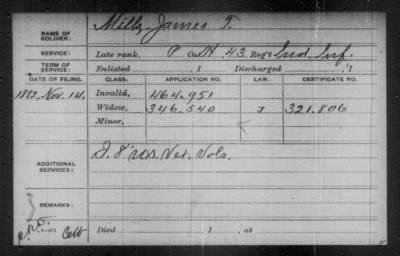 NAME OF SOLDIER: Mills, James T.
SERVICE: Late rank, P Co. H 43 Reg't Ind. Inf.
TERM OF SERVICE: Enlisted , 1 Discharged , 1
DATE OF FILING. CLASS. APPLICATION NO. LAW. CERTIFICATE NO.
1882, Nov. 14. Invalid, 464.951
Widow, 346.540 321.806
Minor,
ADDITIONAL SERVICES: Vet. Vols.
REMARKS:
Died , 1 , at